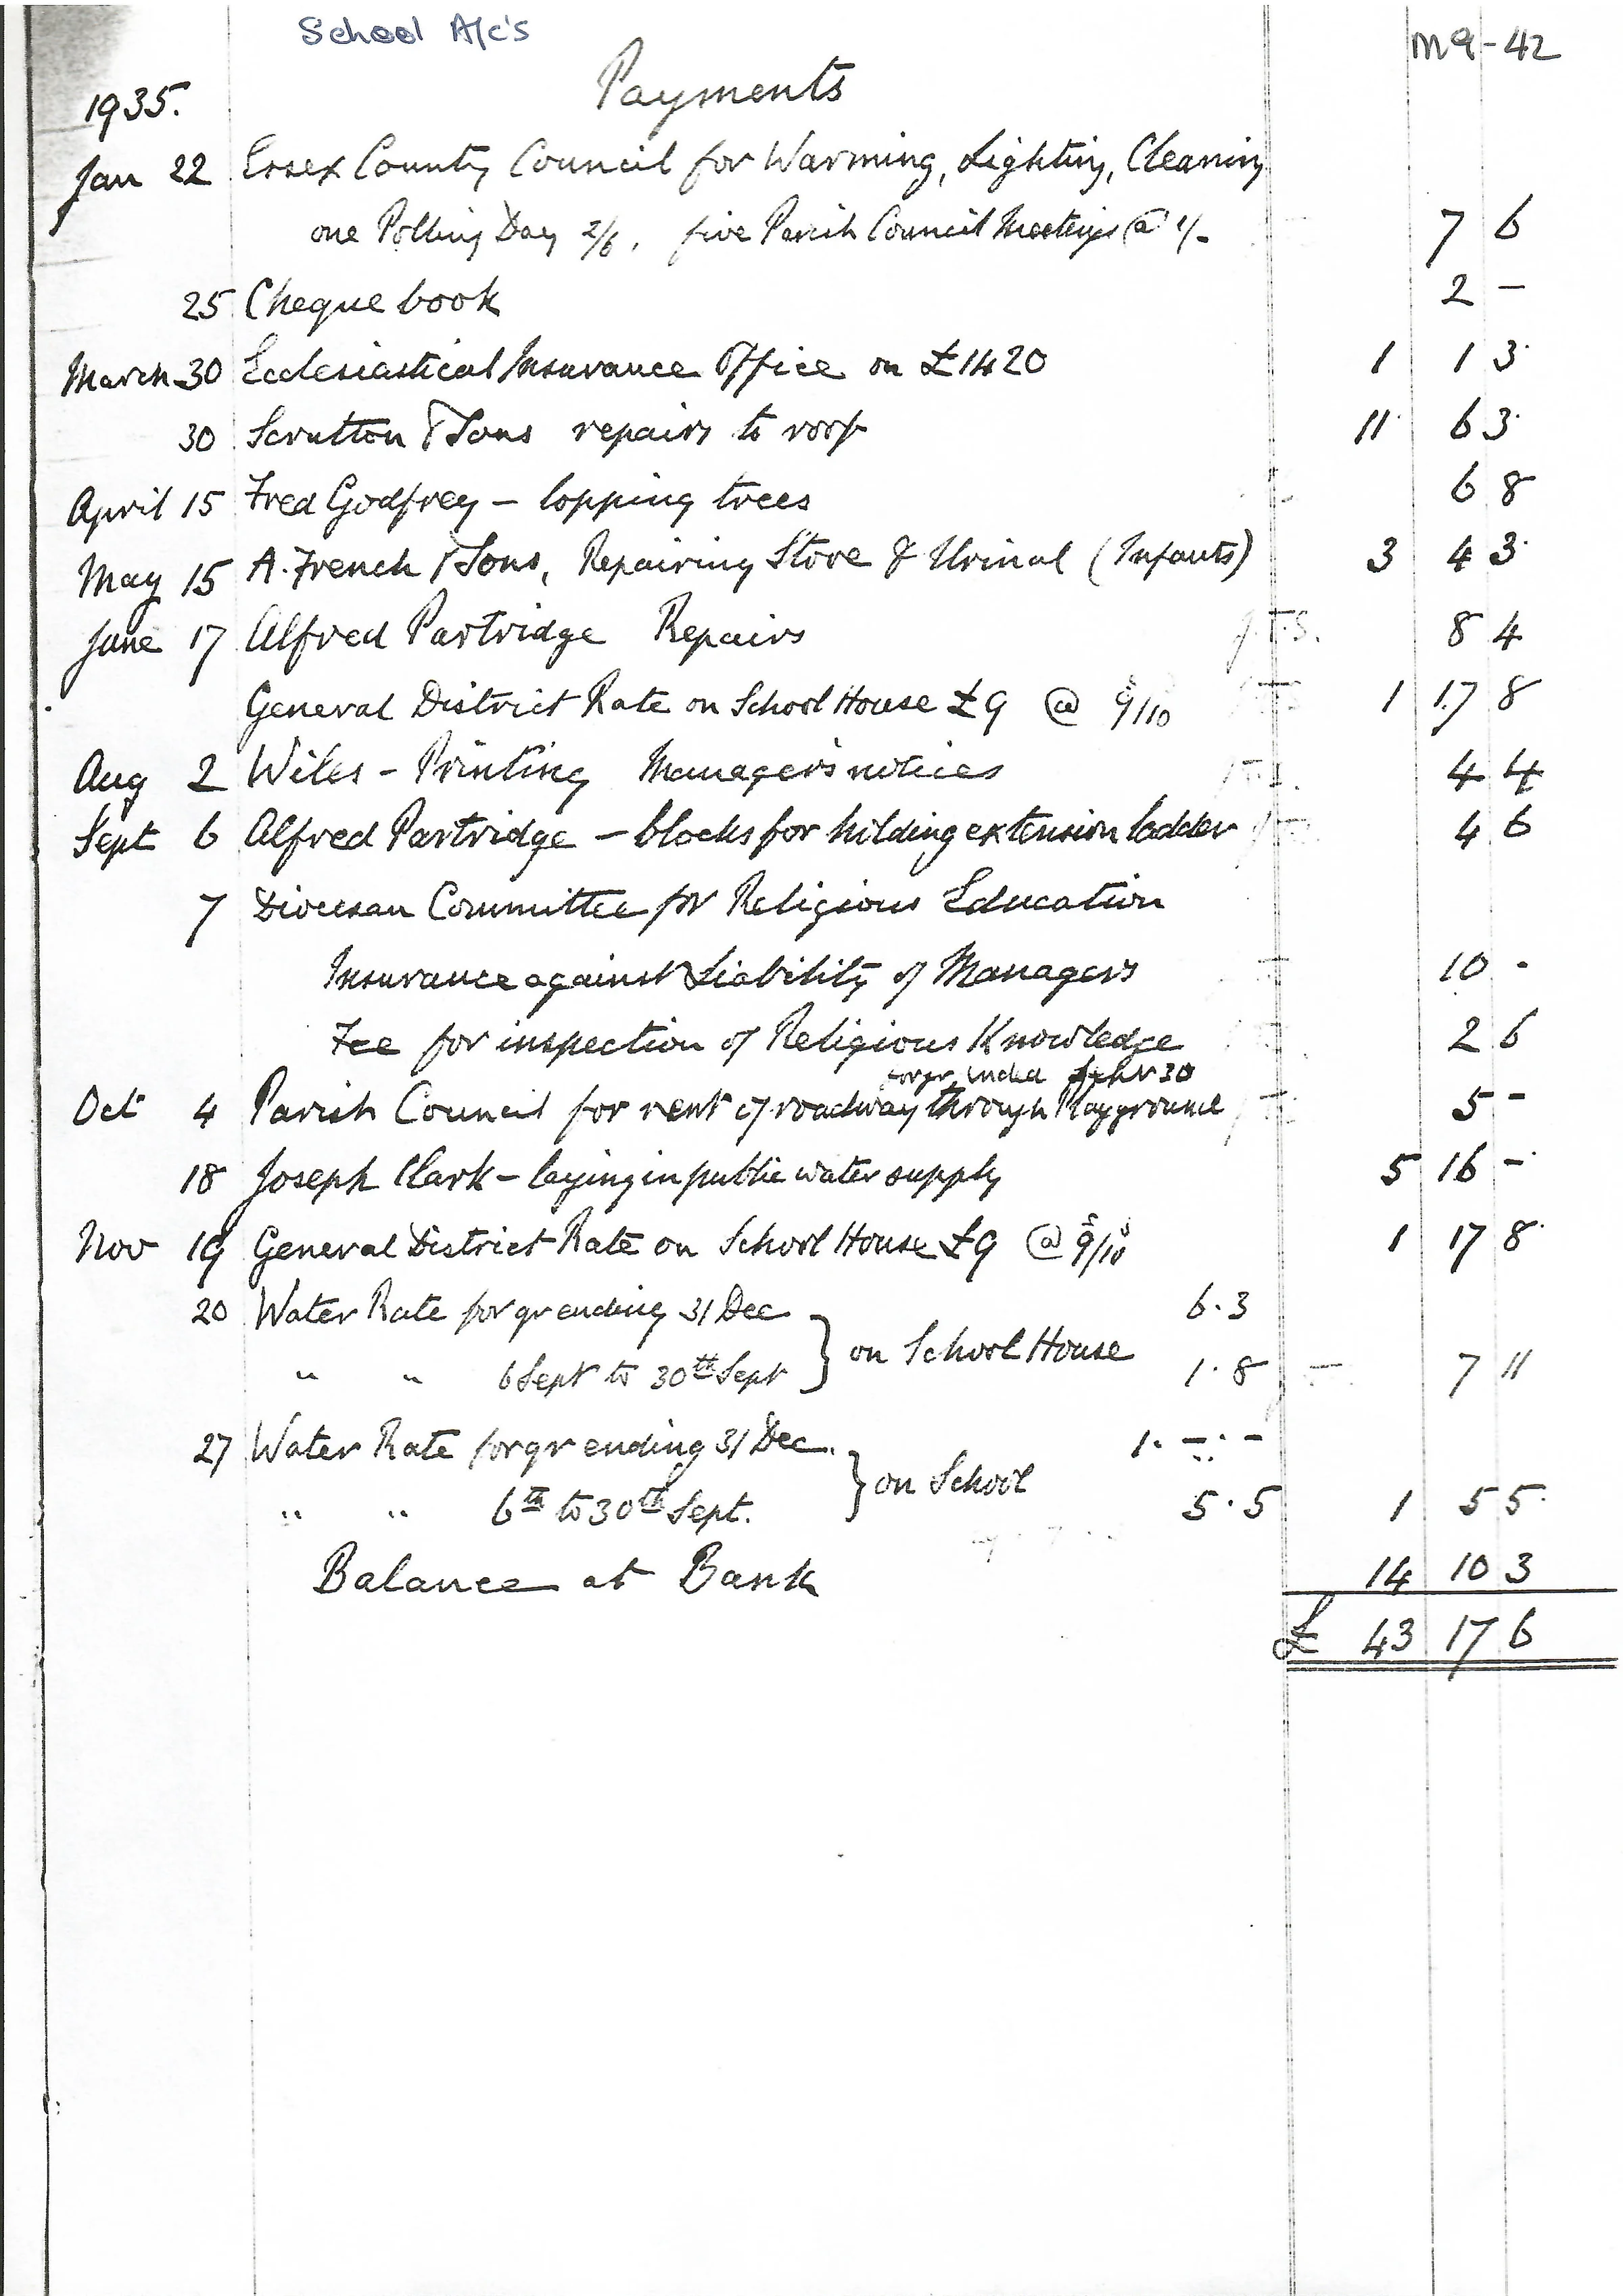 School A/c's
M9-42
Payments
1935.
Jan 22 Essex County Council for Warming, Lighting, Cleaning
one Polling Day 2/6, five Parish Council Meetings @ 1/- 7 6
25 Cheque book 2 –
March 30 Ecclesiastical Insurance Office on £1420 1 1 3
30 Scrutton & Sons repairs to roof 11 6 3
April 15 Fred Godfrey – lopping trees 6 8
May 15 A. French & Sons, Repairing Stove & Urinal (Infants) 3 4 3
June 17 Alfred Partridge Repairs 8 4
General District Rate on School House £9 @ 9/10 1 17 8
Aug 2 Wiles – Printing Managers notices 4 4
Sept 6 Alfred Partridge – blocks for holding extension ladder 4 6
7 Diocesan Committee for Religious Education
Insurance against Liability of Managers 10 -
Fee for inspection of Religious Knowledge 2 6
for yr ended Sept 30
Oct 4 Parish Council for rent of roadway through Playground 5 -
18 Joseph Clark – laying in public water supply 5 16 -
Nov 19 General District Rate on School House £9 @ 9/10 1 17 8
20 Water Rate for qr ending 31 Dec 6.3
" " 6 Sept to 30th Sept } on School House 1.8 – 7 11
27 Water Rate for qr ending 31 Dec. 1. – . –
" " 6th to 30th Sept. } on School 5.5 1 5 5
Balance at Bank 14 10 3
£ 43 17 6